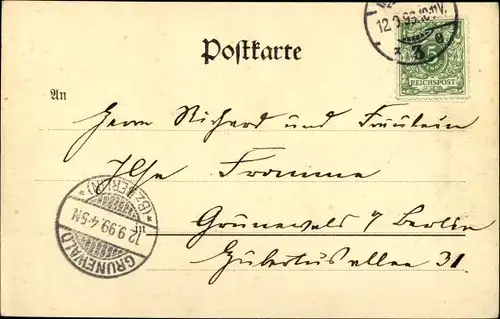 12.9.99.10-11V.
3 e
5
REICHSPOST
Postkarte
An
Herrn Richard und Fräulein
Ilse Fromme
Grunewald / Berlin
Hubertusallee 31
GRUNEWALD
12.9.99.4-5N
*(Bz. BERLIN)*